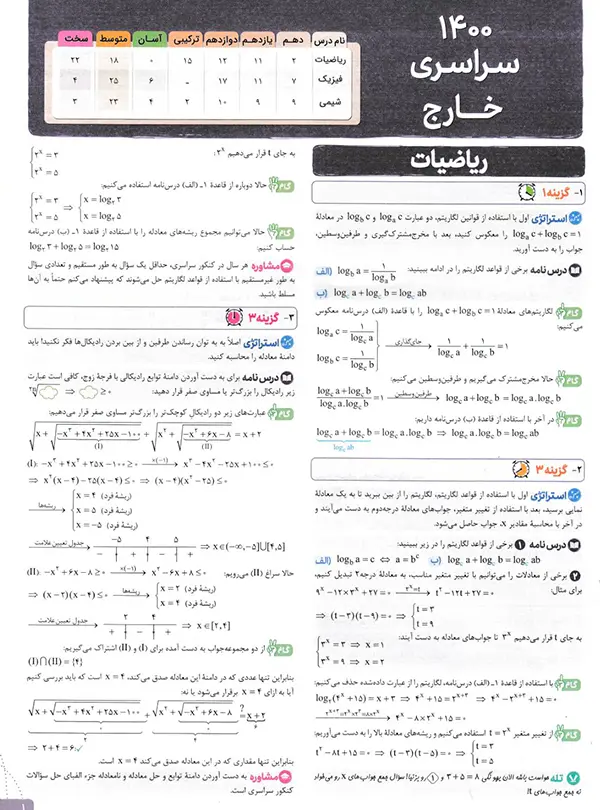 ۱۴۰۰
سراسری
خارج
نام درس دهم یازدهم دوازدهم ترکیبی آسان متوسط سخت
ریاضیات ۲ ۱۱ ۱۲ ۱۵ ۰ ۱۸ ۲۲
فیزیک ۷ ۱۱ ۱۷ - ۶ ۲۵ ۴
شیمی ۹ ۹ ۱۰ ۲ ۴ ۲۳ ۳
ریاضیات
۱- گزینه ۱
استراتژی اول با استفاده از قوانین لگاریتم، دو عبارت logₐ c و log_b c در معادلهٔ
logₐ c + log_b c = ۱ را معکوس کنید، بعد با مخرج‌مشترک‌گیری و طرفین‌وسطین،
جواب را به دست آورید.
درس‌نامه برخی از قواعد لگاریتم را در ادامه ببینید:
الف) log_b a = ۱/logₐ b
ب) log_c a + log_c b = log_c ab
گام ۱ لگاریتم‌های معادلهٔ logₐ c + log_b c = ۱ را با قاعدهٔ (الف) درس‌نامه معکوس
می‌کنیم:
logₐ c = ۱/log_c a
log_b c = ۱/log_c b
جای‌گذاری → ۱/log_c a + ۱/log_c b = ۱
گام ۲ حالا مخرج‌مشترک می‌گیریم و طرفین‌وسطین می‌کنیم:
(log_c a + log_c b)/(log_c a . log_c b) = ۱ طرفین‌وسطین → log_c a + log_c b = log_c a . log_c b
گام ۳ در آخر با قاعدهٔ (ب) درس‌نامه داریم:
log_c a + log_c b = log_c a . log_c b ⇒ log_c a . log_c b = log_c ab
log_c ab
۲- گزینه ۳
استراتژی اول با استفاده از قواعد لگاریتم، لگاریتم را از بین ببرید تا به یک معادلهٔ
نمایی برسید، بعد با استفاده از تغییر متغیر، جواب‌های معادلهٔ درجه‌دوم به دست می‌آیند و
در آخر با محاسبهٔ مقادیر x، جواب حاصل می‌شود.
درس‌نامه ۱ برخی از قواعد لگاریتم را در زیر ببینید:
الف) log_b a = c ⇔ a = bᶜ ب) log_c a + log_c b = log_c ab
۲ برخی از معادلات را می‌توانیم با تغییر متغیر مناسب، به معادلهٔ درجه۲ تبدیل کنیم،
برای مثال: ۹ˣ − ۱۲×۳ˣ + ۲۷ = ۰ ۳ˣ=t → t² − ۱۲t + ۲۷ = ۰
⇒ (t−۳)(t−۹) = ۰ ⇒ t = ۳ t = ۹
به جای t قرار می‌دهیم ۳ˣ تا جواب‌های معادله به دست آیند:
۳ˣ = ۳ ⇒ x = ۱
۳ˣ = ۹ ⇒ x = ۲
گام ۱ با استفاده از قاعدهٔ ۱ـ (الف) درس‌نامه، لگاریتم را از عبارت داده‌شده حذف می‌کنیم:
log₂(۴ˣ + ۱۵) = x + ۳ ⇒ ۴ˣ + ۱۵ = ۲ˣ⁺³ ⇒ ۴ˣ − ۲ˣ⁺³ + ۱۵ = ۰
۲ˣ⁺³=۲ˣ×۲³=۸×۲ˣ → ۴ˣ − ۸×۲ˣ + ۱۵ = ۰
گام ۲ از تغییر متغیر t = ۲ˣ استفاده می‌کنیم و ریشه‌های معادلهٔ بالا را به دست می‌آوریم:
t² − ۸t + ۱۵ = ۰ ⇒ (t−۳)(t−۵) = ۰ ⇒ t = ۳ t = ۵
تله حواست باشه الان یهو نگی ۸ = ۵ + ۳ و ۱ رو بزنی! سؤال جمع جواب‌های x رو می‌خواد
نه جمع جواب‌های t!
به جای t قرار می‌دهیم ۲ˣ:
۲ˣ = ۳
۲ˣ = ۵
گام ۳ حالا دوباره از قاعدهٔ ۱ـ (الف) درس‌نامه استفاده می‌کنیم:
۲ˣ = ۳ ⇒ x = log₂ ۳
۲ˣ = ۵ ⇒ x = log₂ ۵
گام ۴ حالا می‌توانیم مجموع ریشه‌های معادله را با استفاده از قاعدهٔ ۱ـ (ب) درس‌نامه
حساب کنیم: log₂ ۳ + log₂ ۵ = log₂ ۱۵
مشاوره هر سال در کنکور سراسری، حداقل یک سؤال به طور مستقیم و تعدادی سؤال
به طور غیرمستقیم با استفاده از قواعد لگاریتم حل می‌شوند که پیشنهاد می‌کنم حتماً به آن‌ها
مسلط باشید.
۳- گزینه ۳
استراتژی اصلاً به به توان رساندن طرفین و از بین بردن رادیکال‌ها فکر نکنید! باید
دامنهٔ معادله را محاسبه کنید.
درس‌نامه برای به دست آوردن دامنهٔ توابع رادیکالی با فرجهٔ زوج، کافی است عبارت
زیر رادیکال را بزرگ‌تر یا مساوی صفر قرار دهید: ⇒ ≥ ۰
گام ۱ عبارت‌های زیر دو رادیکال کوچک‌تر را بزرگ‌تر یا مساوی صفر قرار می‌دهیم:
√(x + √(−x³ + ۴x² + ۲۵x − ۱۰۰)) + √(x + √(−x² + ۶x − ۸)) = x + ۲
(I) (II)
(I): −x³ + ۴x² + ۲۵x − ۱۰۰ ≥ ۰ ×(−۱) → x³ − ۴x² − ۲۵x + ۱۰۰ ≤ ۰
⇒ x²(x−۴) − ۲۵(x−۴) ≤ ۰ ⇒ (x−۴)(x² − ۲۵) ≤ ۰
ریشه‌ها → x = ۴ (ریشهٔ فرد)
x = ۵ (ریشهٔ فرد)
x = −۵ (ریشهٔ فرد)
جدول تعیین علامت → −۵ ۴ ۵ − + − + ⇒ x ∈ (−∞, −۵] ∪ [۴, ۵]
حالا سراغ (II) می‌رویم: (II): −x² + ۶x − ۸ ≥ ۰ ×(−۱) → x² − ۶x + ۸ ≤ ۰
⇒ (x−۲)(x−۴) ≤ ۰ ریشه‌ها → x = ۲ (ریشهٔ فرد) x = ۴ (ریشهٔ فرد)
جدول تعیین علامت → ۲ ۴ + − + ⇒ x ∈ [۲, ۴]
گام ۲ از دو مجموعه‌جواب به دست آمده برای (I) و (II) اشتراک می‌گیریم:
(I) ∩ (II) = {۴}
بنابراین تنها عددی که در دامنهٔ این معادله صدق می‌کند، x = ۴ است که باید بررسی کنیم
آیا به ازای x = ۴ برقرار می‌شود یا نه:
√(x + √(−x³ + ۴x² + ۲۵x − ۱۰۰)) + √(x + √(−x² + ۶x − ۸)) =? x + ۲
⇒ ۲ + ۴ = ۶ ✓
بنابراین تنها مقداری که در این معادله صدق می‌کند x = ۴ است.
مشاوره به دست آوردن دامنهٔ توابع و حل معادله و نامعادله جزء الفبای حل سؤالات
کنکور سراسری است.
۱